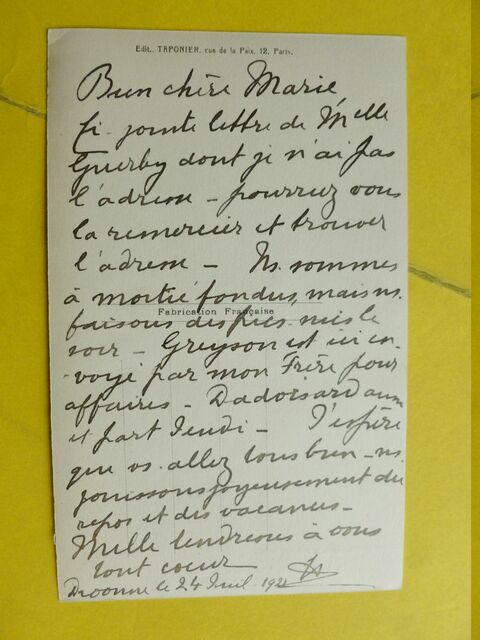 Edit. TAPONIER, rue de la Paix, 12, Paris.
Bien chère Marie
Ci-jointe lettre de Melle
dont je n'ai pas
l'adresse - pourriez vous
la remercier et trouver
l'adresse - Ns. sommes
à moitié fondus, mais ns.
Fabrication Française
faisons des pics-nics le
soir - Greyson est ici en-
-voyé par mon Frère pour
affaires - aussi
et part Jeudi - J'espère
que vs. allez tous bien - ns.
jouissons joyeusement du
repos et des vacances -
Mille tendresses à vous
tout coeur
le 24 Juil. 192